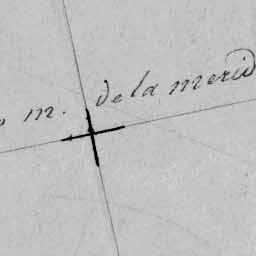 m. de la merid